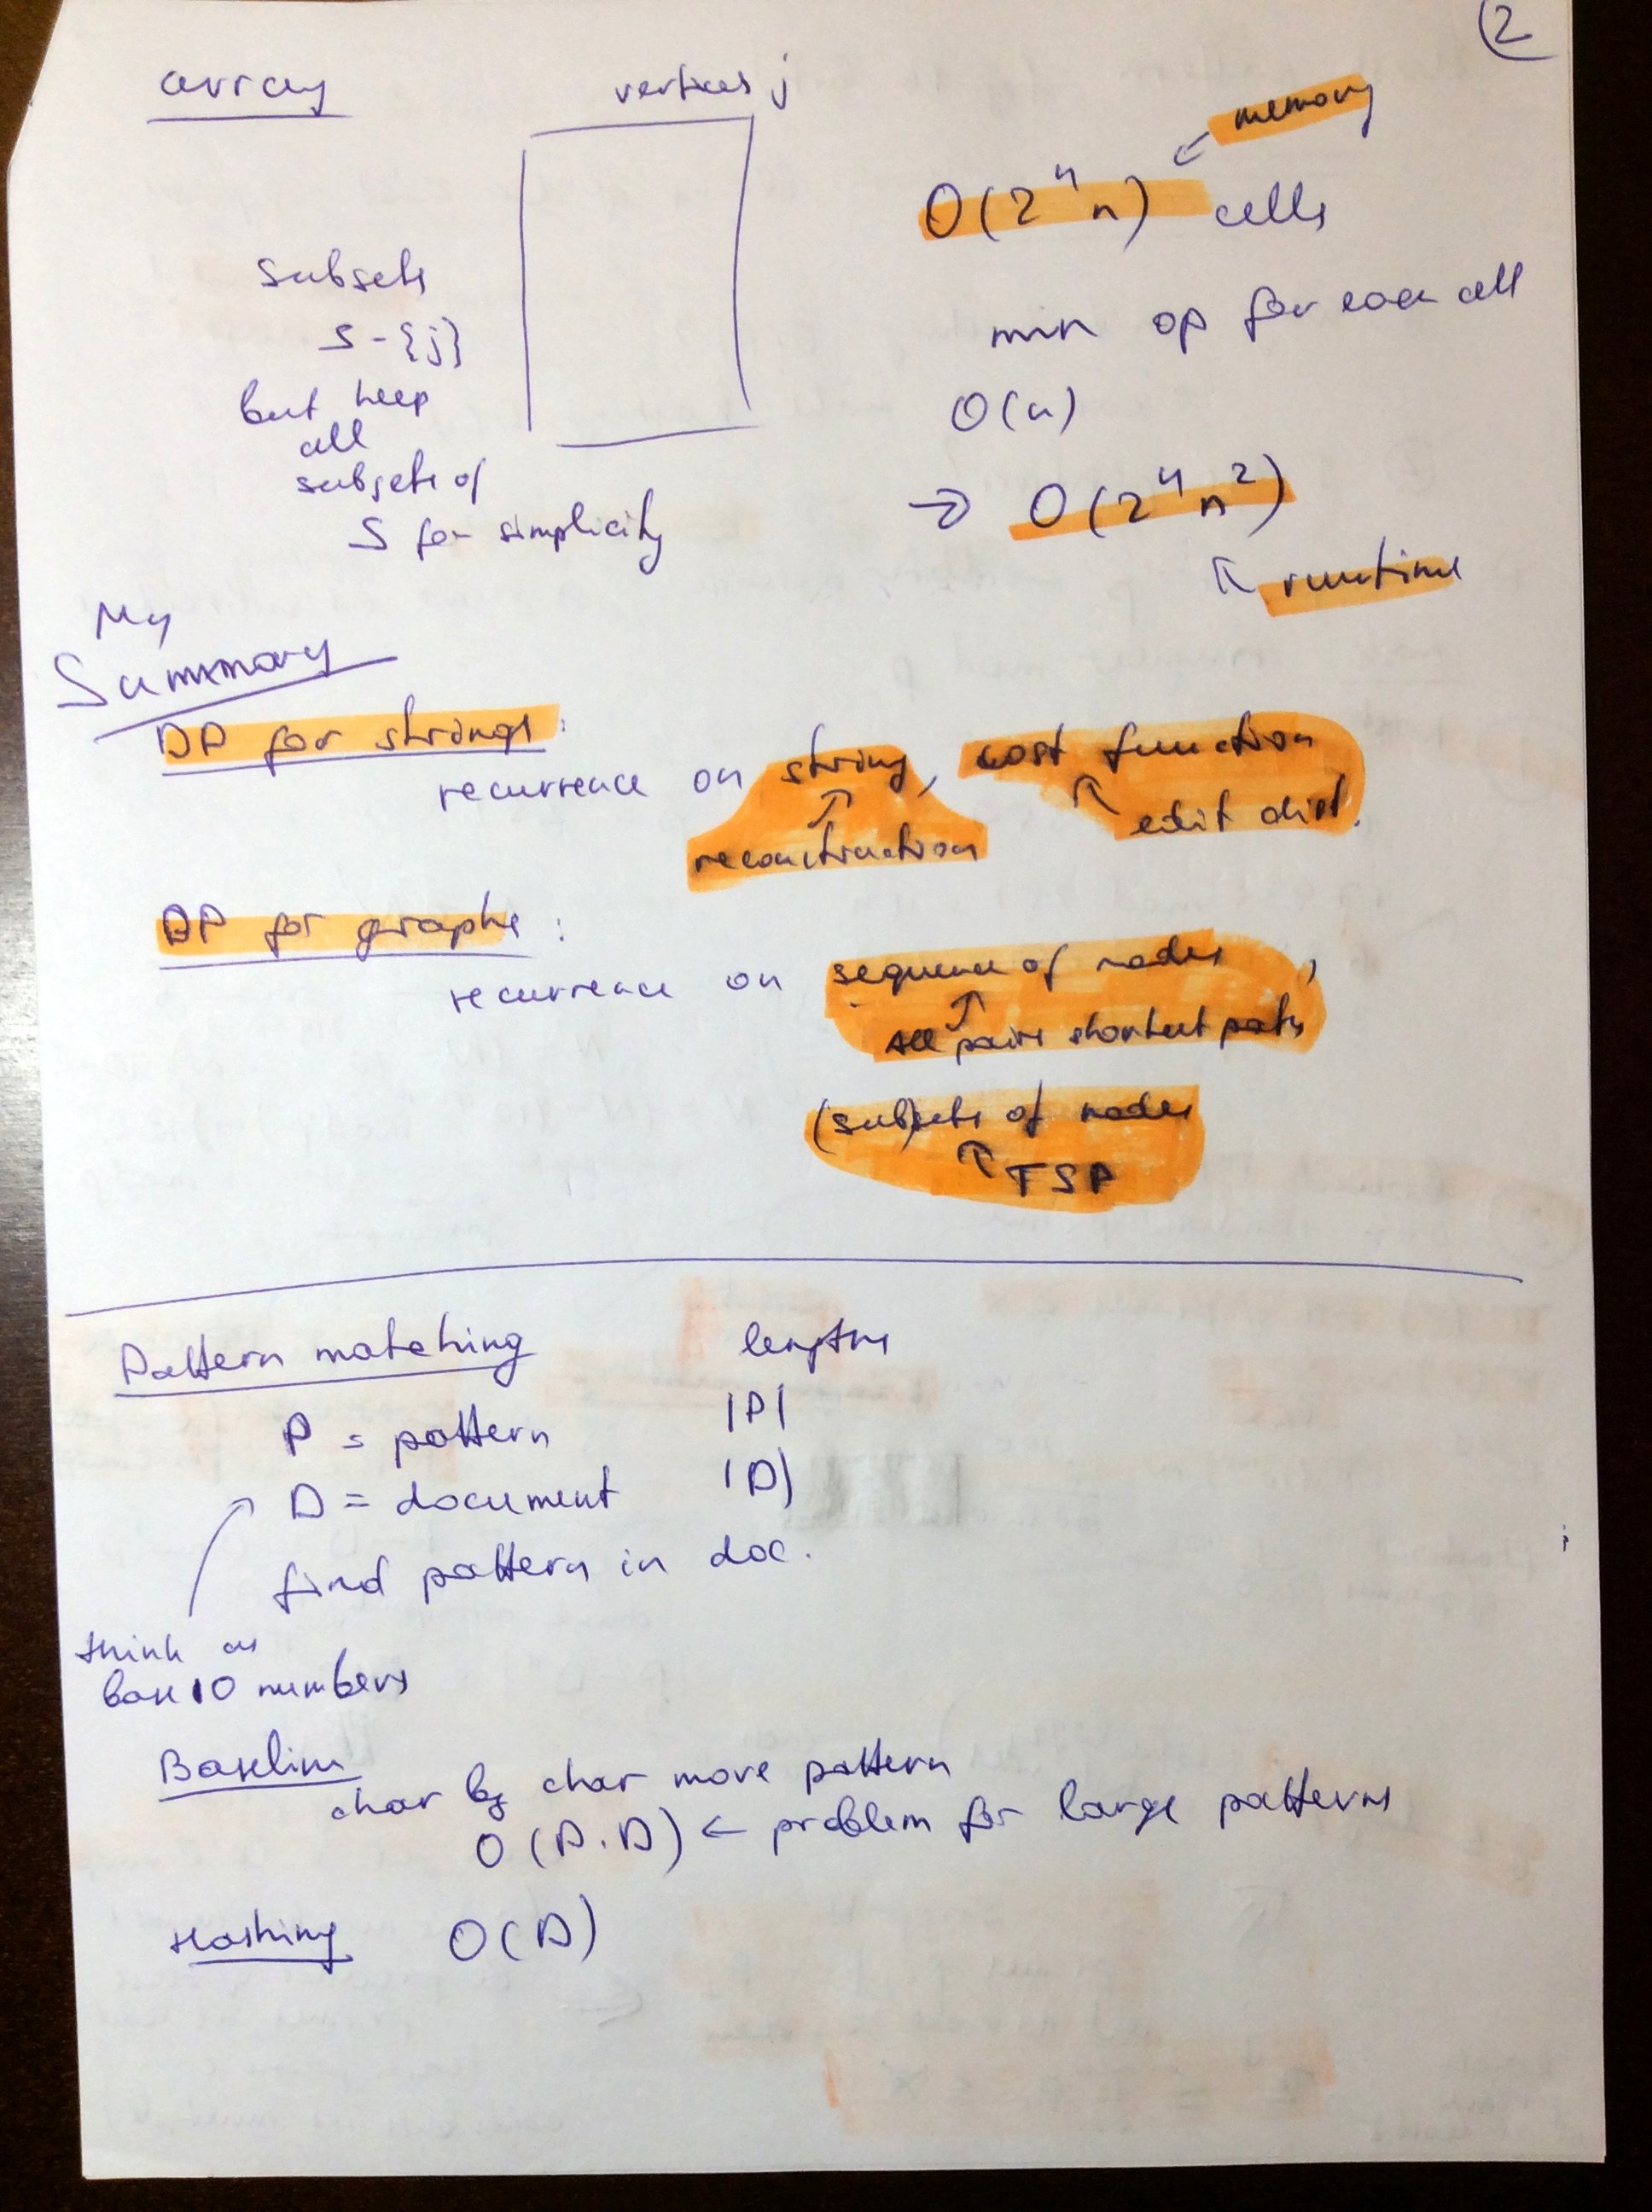 2
array
vertices j
memory
O(2^n n) cells
subsets
S-{j}
but keep
all
subsets of
S for simplicity
min op for each cell
O(n)
→ O(2^n n^2)
↑ runtime
My
Summary
DP for strings:
recurrence on string, cost function
↑ reconstruction
↑ edit dist.
DP for graphs:
recurrence on sequence of nodes,
↑
all pairs shortest paths
(sub)sets of nodes
↑ TSP
Pattern matching lengths
P = pattern |P|
D = document |D|
find pattern in doc.
think as
base 10 numbers
Baseline
char by char move pattern
O(P·D) ← problem for large patterns
Hashing O(D)